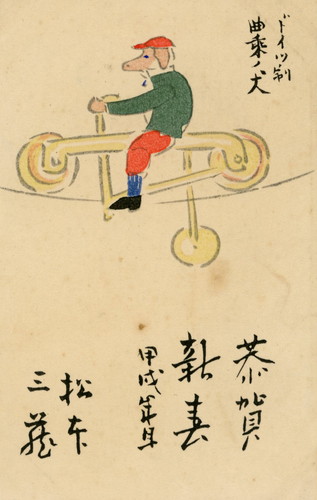 ドイツ制
曲乗ノ犬
恭賀
新春
甲戌年
松本
三蔵